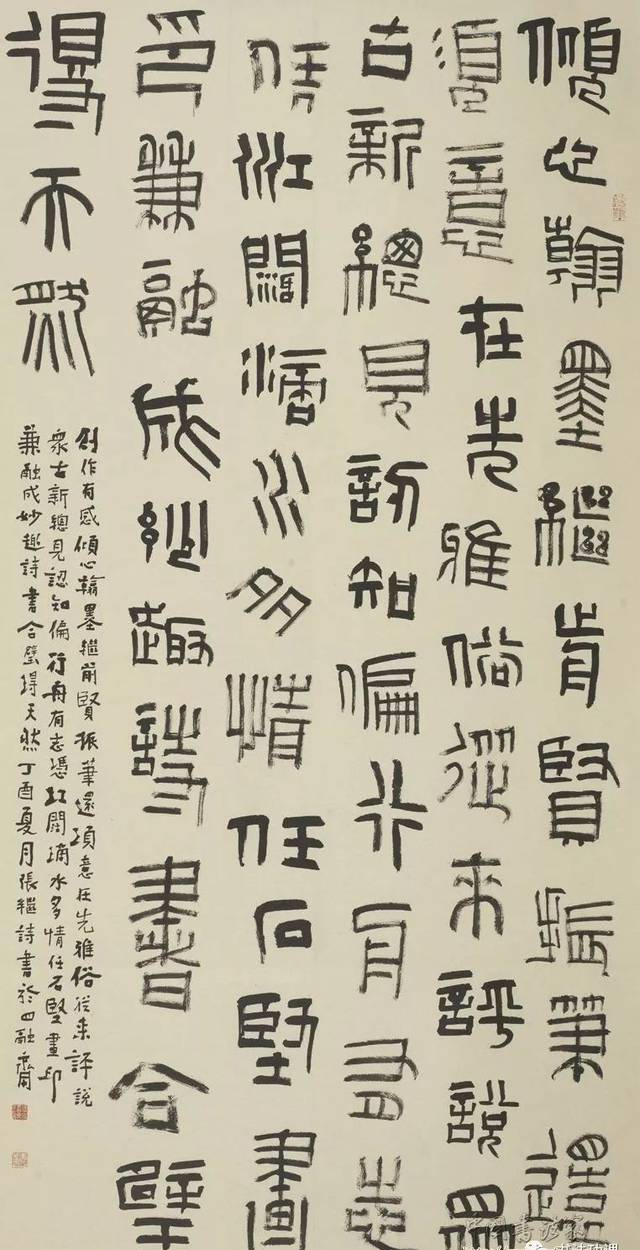 傾心翰墨繼前賢振筆還
須意在先雅俗從來評說眾
古新總見認知偏行舟有志
凭江闊滴水多情任石堅畫
印兼融成妙趣詩書合璧
得天然
創作有感傾心翰墨繼前賢振筆還須意在先雅俗從來評說
眾古新總見認知偏行舟有志憑江闊滴水多情任石堅畫印
兼融成妙趣詩書合璧得天然丁酉夏月張繼詩書於四融齋
中国書法報